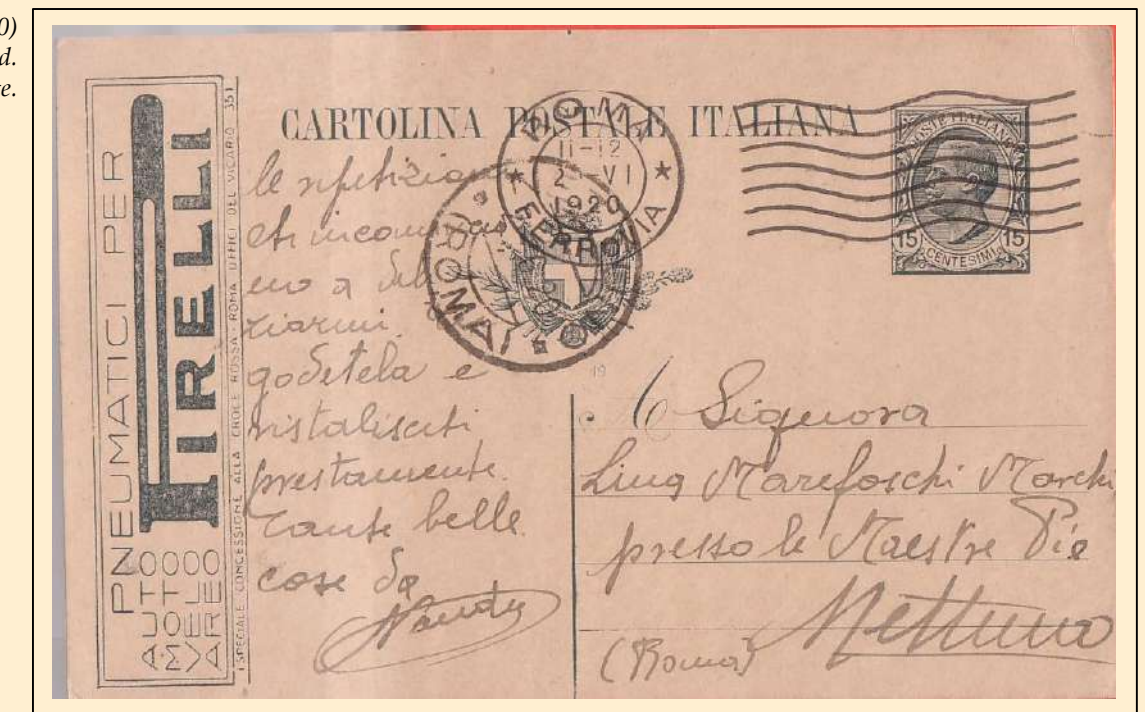 0)
d.
e.
PNEUMATICI PER
PIRELLI
AUTO
MOTO
VELO
AREO
(SPECIALE CONCESSIONE ALLA CROCE ROSSA - ROMA UFFICI DEL VICARIO 35)
CARTOLINA POSTALE ITALIANA
ROMA
11-12
2 -VI
1920
FERROVIA
ROMA
POSTE ITALIANE
15 15
CENTESIMI
le ripetizioni
che incomincia
no a
ziarmi.
godetela e
ristabilisciti
prestamente.
Tante belle
cose da
19
Signora
Lina Marefoschi Marchi
presso le Maestre Pie
Nettuno
(Roma)